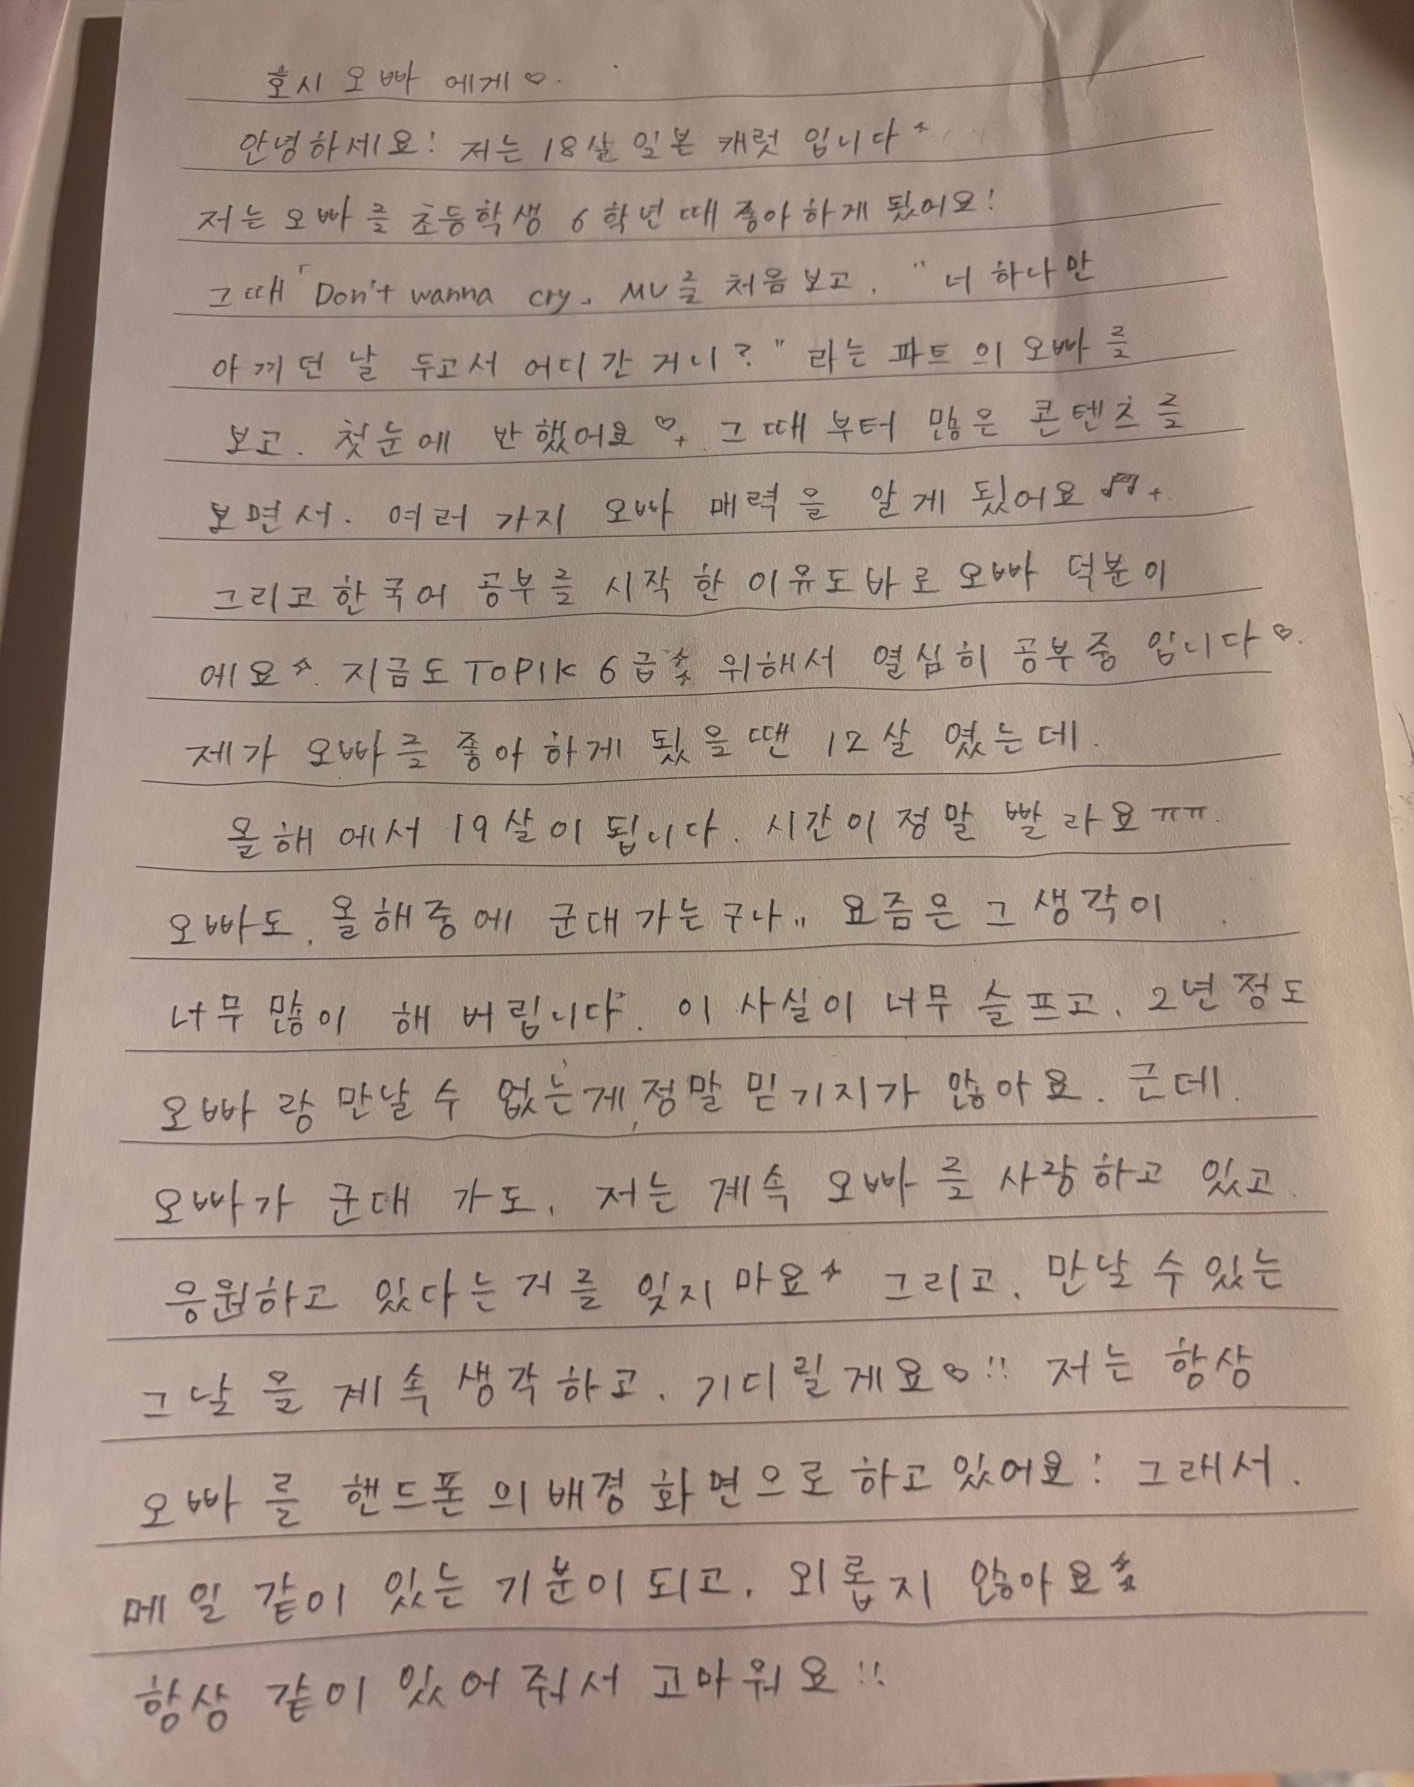 호시 오빠 에게♡.
안녕하세요! 저는 18살 일본 캐럿 입니다
저는 오빠를 초등학생 6학년 때 좋아하게 됬어요!
그때「Don't wanna cry」 MV를 처음보고, "너 하나만
아끼던 날 두고서 어디간 거니?" 라는 파트의 오빠를
보고. 첫눈에 반했어요♡ 그때부터 많은 콘텐츠를
보면서. 여러 가지 오빠 매력을 알게 됬어요
그리고 한국어 공부를 시작 한 이유도 바로 오빠 덕분이
에요. 지금도 TOPIK 6급 위해서 열심히 공부중 입니다♡.
제가 오빠를 좋아하게 됬을땐 12살 였는데.
올해에서 19살이 됩니다. 시간이 정말 빨라요ㅠㅠ.
오빠도, 올해중에 군대 가는구나,, 요즘은 그 생각이
너무 많이 해 버립니다. 이 사실이 너무 슬프고, 2년 정도
오빠랑 만날 수 없는게, 정말 믿기지가 않아요. 근데.
오빠가 군대 가도, 저는 계속 오빠를 사랑하고 있고.
응원하고 있다는 거를 잊지 마요 그리고, 만날 수 있는
그날을 계속 생각하고, 기디릴게요♡!! 저는 항상
오빠를 핸드폰의 배경 화면으로 하고 있어요! 그래서.
메일 같이 있는 기분이 되고, 외롭지 않아요
항상 같이 있어 줘서 고마워요!!